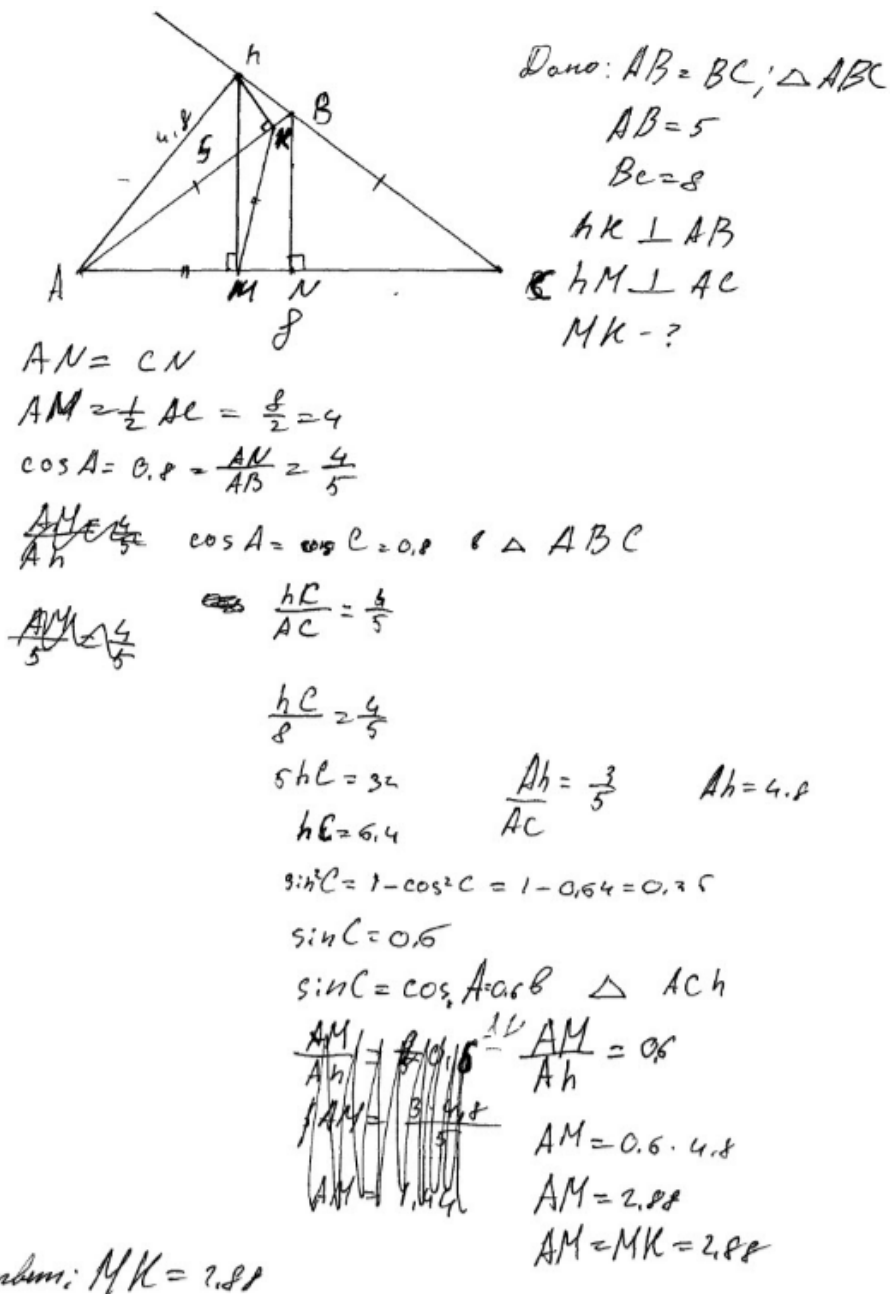 h
B
4.8
5
K
A
M
N
C
8
Дано: AB = BC; △ ABC
AB = 5
Bc = 8
hK ⊥ AB
hM ⊥ AC
MK - ?
AN = CN
AM = 1/2 AC = 8/2 = 4
cos A = 0.8 = AN/AB = 4/5
AM/Ah = 4/5
cos A = cos C = 0,8 в △ ABC
AM/5 = 4/5
hC/AC = 4/5
hC/8 = 4/5
5hC = 32
hC = 6,4
Ah/AC = 3/5
Ah = 4.8
sin²C = 1 - cos²C = 1 - 0,64 = 0.36
sin C = 0.6
sin C = cos A = 0.6 в △ ACh
AM/Ah = 0,6
AM = 3·4,8/5
AM = 1,44
AM/Ah = 0,6
AM = 0.6 · 4,8
AM = 2,88
AM = MK = 2,88
MK = 2,88